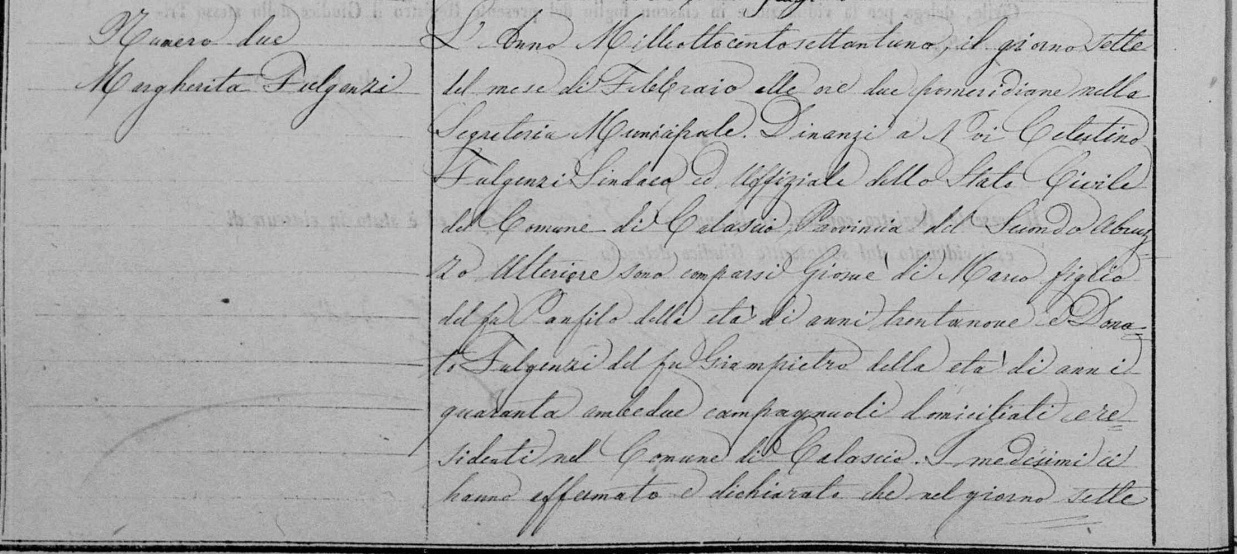 Numero due
Margherita Fulgenzi
L'Anno Milleottocentosettantuno, il giorno sette
del mese di Febbraio alle ore due pomeridiane nella
Segreteria Municipale. Dinanzi a Noi Celestino
Fulgenzi Sindaco ed Uffiziale dello Stato Civile
del Comune di Calascio, Provincia del Secondo Abruz=
zo Ulteriore sono comparsi Giosue di Marco figlio
del fu Panfilo della età di anni trentanove e Dona=
to Fulgenzi del fu Giampietro della età di anni
quaranta ambedue campagnuoli domiciliati e re=
sidenti nel Comune di Calascio. I medesimi ci
hanno affermato e dichiarato che nel giorno sette